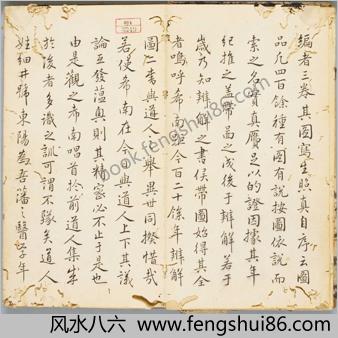 編者三卷其圖寫生照真自序云圖
品凡四百餘種有圖有說按圖依說而
索之名實真贋足以的證因據其年
紀推之蓋帶 之 後于辨解若于
歲乃知辨解之書俟帶圖始得其全
者嗚呼希南 今百二十餘年辨解
圖 書與道人 舉異世同揆惜哉
若使希南在今 與道人上下其議
論互發蘊奧則其精密必不止于是也
由是觀之希南唱首於前道人集成
於後者多識之訓可謂不隊矣道人
姓細井號東陽為吾藩之醫學年
book.fengshui86.com
风水八六 www.fengshui86.com